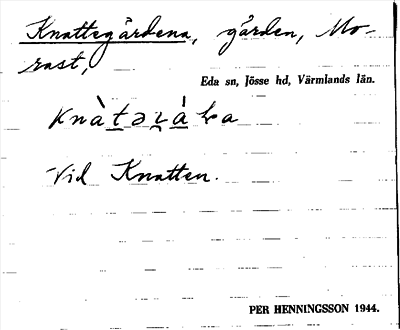 Knattegårdena, gården, Mo-
rast,
Eda sn, Jösse hd, Värmlands län.
Vid Knatten.
PER HENNINGSSON 1944.